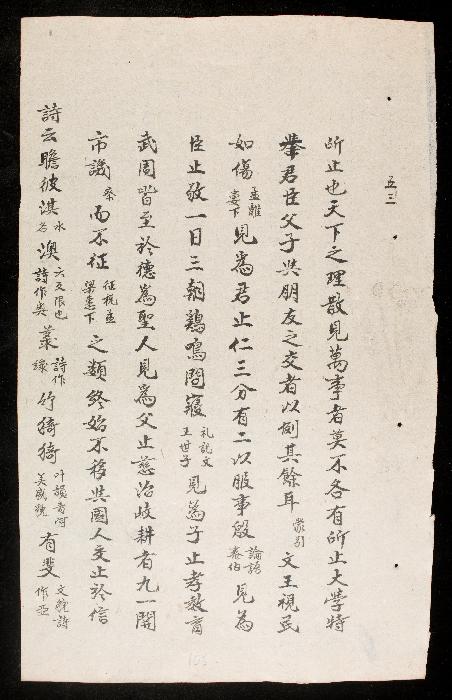 五三
所止也天下之理散見萬事者莫不各有所止大學特
舉君臣父子與朋友之交者以例其餘耳 蒙引 文王視民
如傷 孟離婁下 見爲君止仁三分有二以服事殷 論語泰伯 見爲
臣止敬一日三朝鷄鳴問寢 礼記文王世子 見爲子止孝教育
武周皆至於德爲聖人見爲父止慈治岐耕者九一開
市譏 察 而不征 征稅孟梁惠下 之類終始不移與國人交止於信
詩云瞻彼淇 水名 澳 六反隈也詩作奥 菉 詩作綠 竹猗猗 叶韻音阿美盛貌 有斐 文貌詩作匪